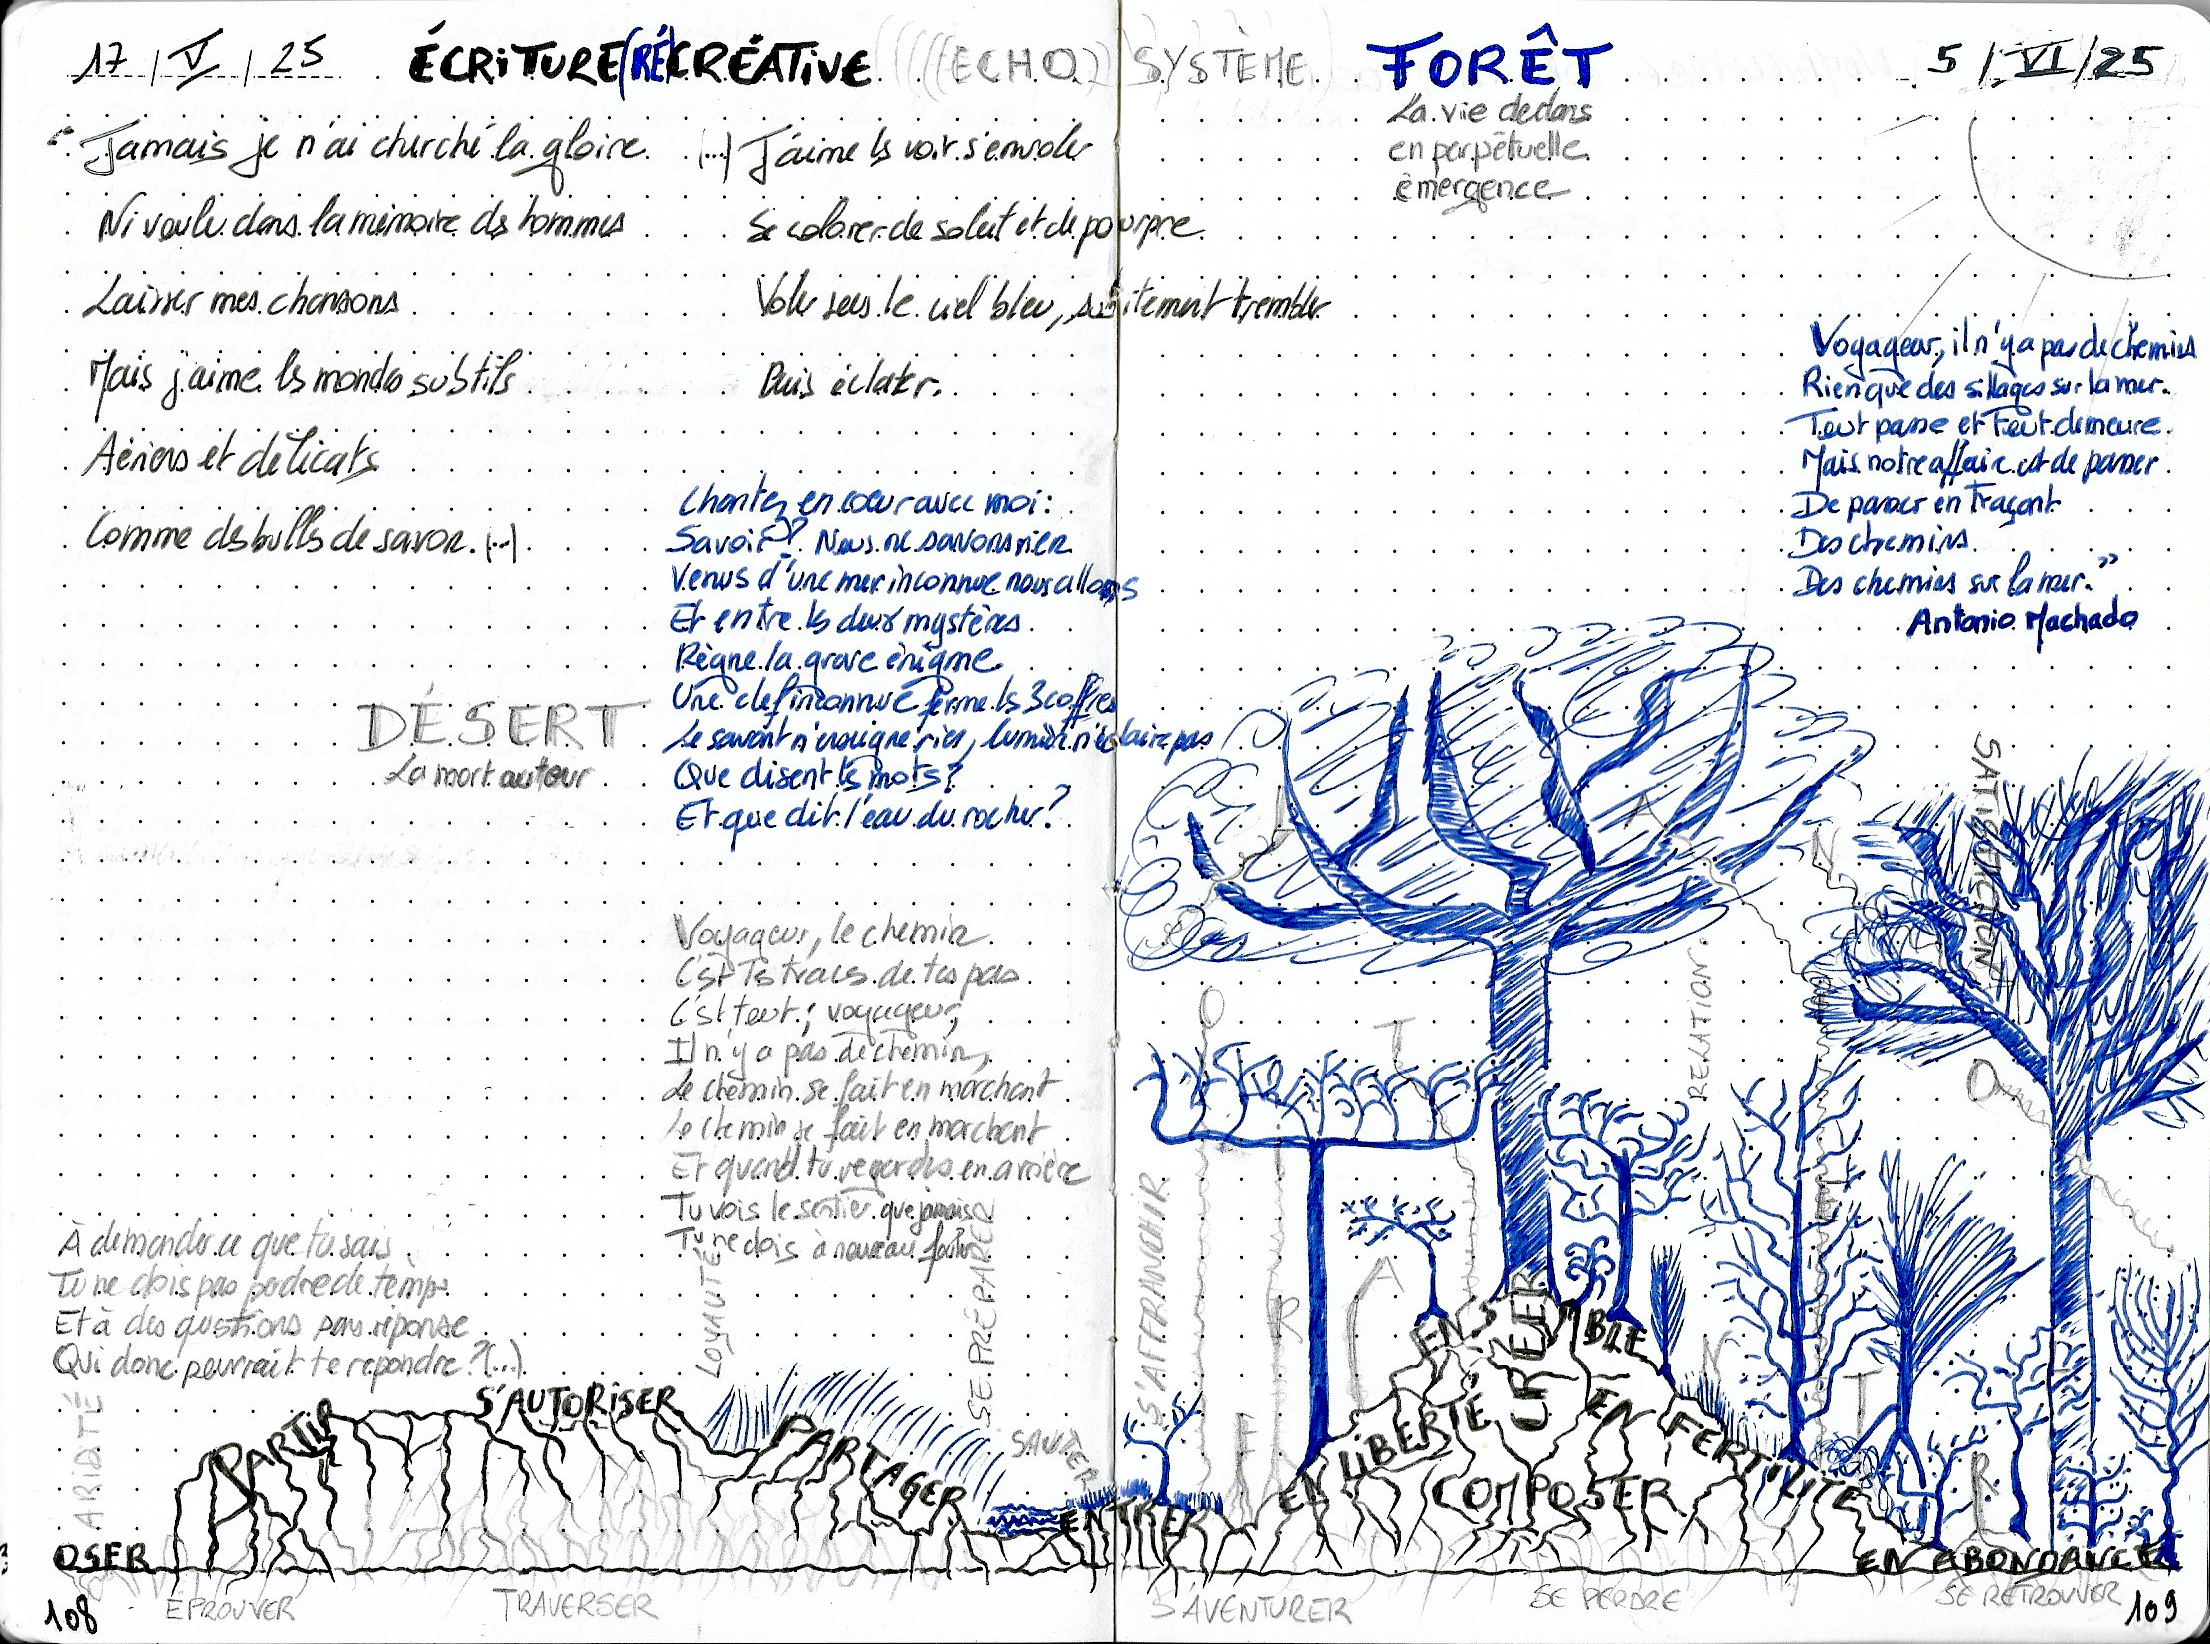 17 | V | 25 ÉCRiTURE(RÉ)CRÉATiVE (((( ECHO)) SYSTÈME FORÊT 5 | VI | 25
La vie dedans
en perpétuelle
émergence
" Jamais je n'ai cherché la gloire
Ni voulu dans la mémoire des hommes
Laisser mes chansons
Mais j'aime les mondes subtils
Aériens et délicats
Comme des bulles de savon. (...)
(...) J'aime les voir s'envoler
Se colorer de soleil et de pourpre
Voler sous le ciel bleu, subitement trembler
Puis éclater.
DÉSERT
La mort autour
Chantez en cœur avec moi :
Savoir ? Nous ne savons rien
Venus d'une mer inconnue nous allons
Et entre les deux mystères
Règne la grave énigme
Une clef inconnue ferme les 3 coffres
Le savant n'enseigne rien, lumière n'éclaire pas
Que disent les mots ?
Et que dit l'eau du rocher ?
Voyageur, le chemin
C'est les traces de tes pas
C'est tout ; voyageur,
Il n'y a pas de chemin,
Le chemin se fait en marchant
Le chemin se fait en marchant
Et quand tu regardes en arrière
Tu vois le sentier que jamais
Tu ne dois à nouveau fouler
À demander ce que tu sais
Tu ne dois pas perdre de temps
Et à des questions sans réponse
Qui donc pourrait te répondre ? (...)
Voyageur, il n'y a pas de chemins
Rien que des sillages sur la mer.
Tout passe et Tout demeure
Mais notre affaire est de passer
De passer en Traçant
Des chemins
Des chemins sur la mer. "
Antonio Machado
ARIDITÉ
LOYAUTÉ
SE PRÉPARER
SAUTER
S'AFFRANCHIR
RELATION
SATISFACTION
OSER
PARTIR
S'AUTORISER
PARTAGER
ENTRER
EN LIBERTÉ
ENSEMBLE
CRÉER
COMPOSER
EN FERTILITÉ
EN ABONDANCE
ÉPROUVER
TRAVERSER
S'AVENTURER
SE PERDRE
SE RETROUVER
108
109